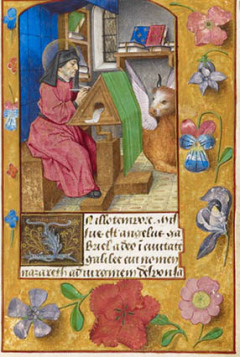 In illo tempore. Mis
sus est angelus ga
briel a deo i ciuitate
galilee cui nomen
nazareth ad virginem desponsa